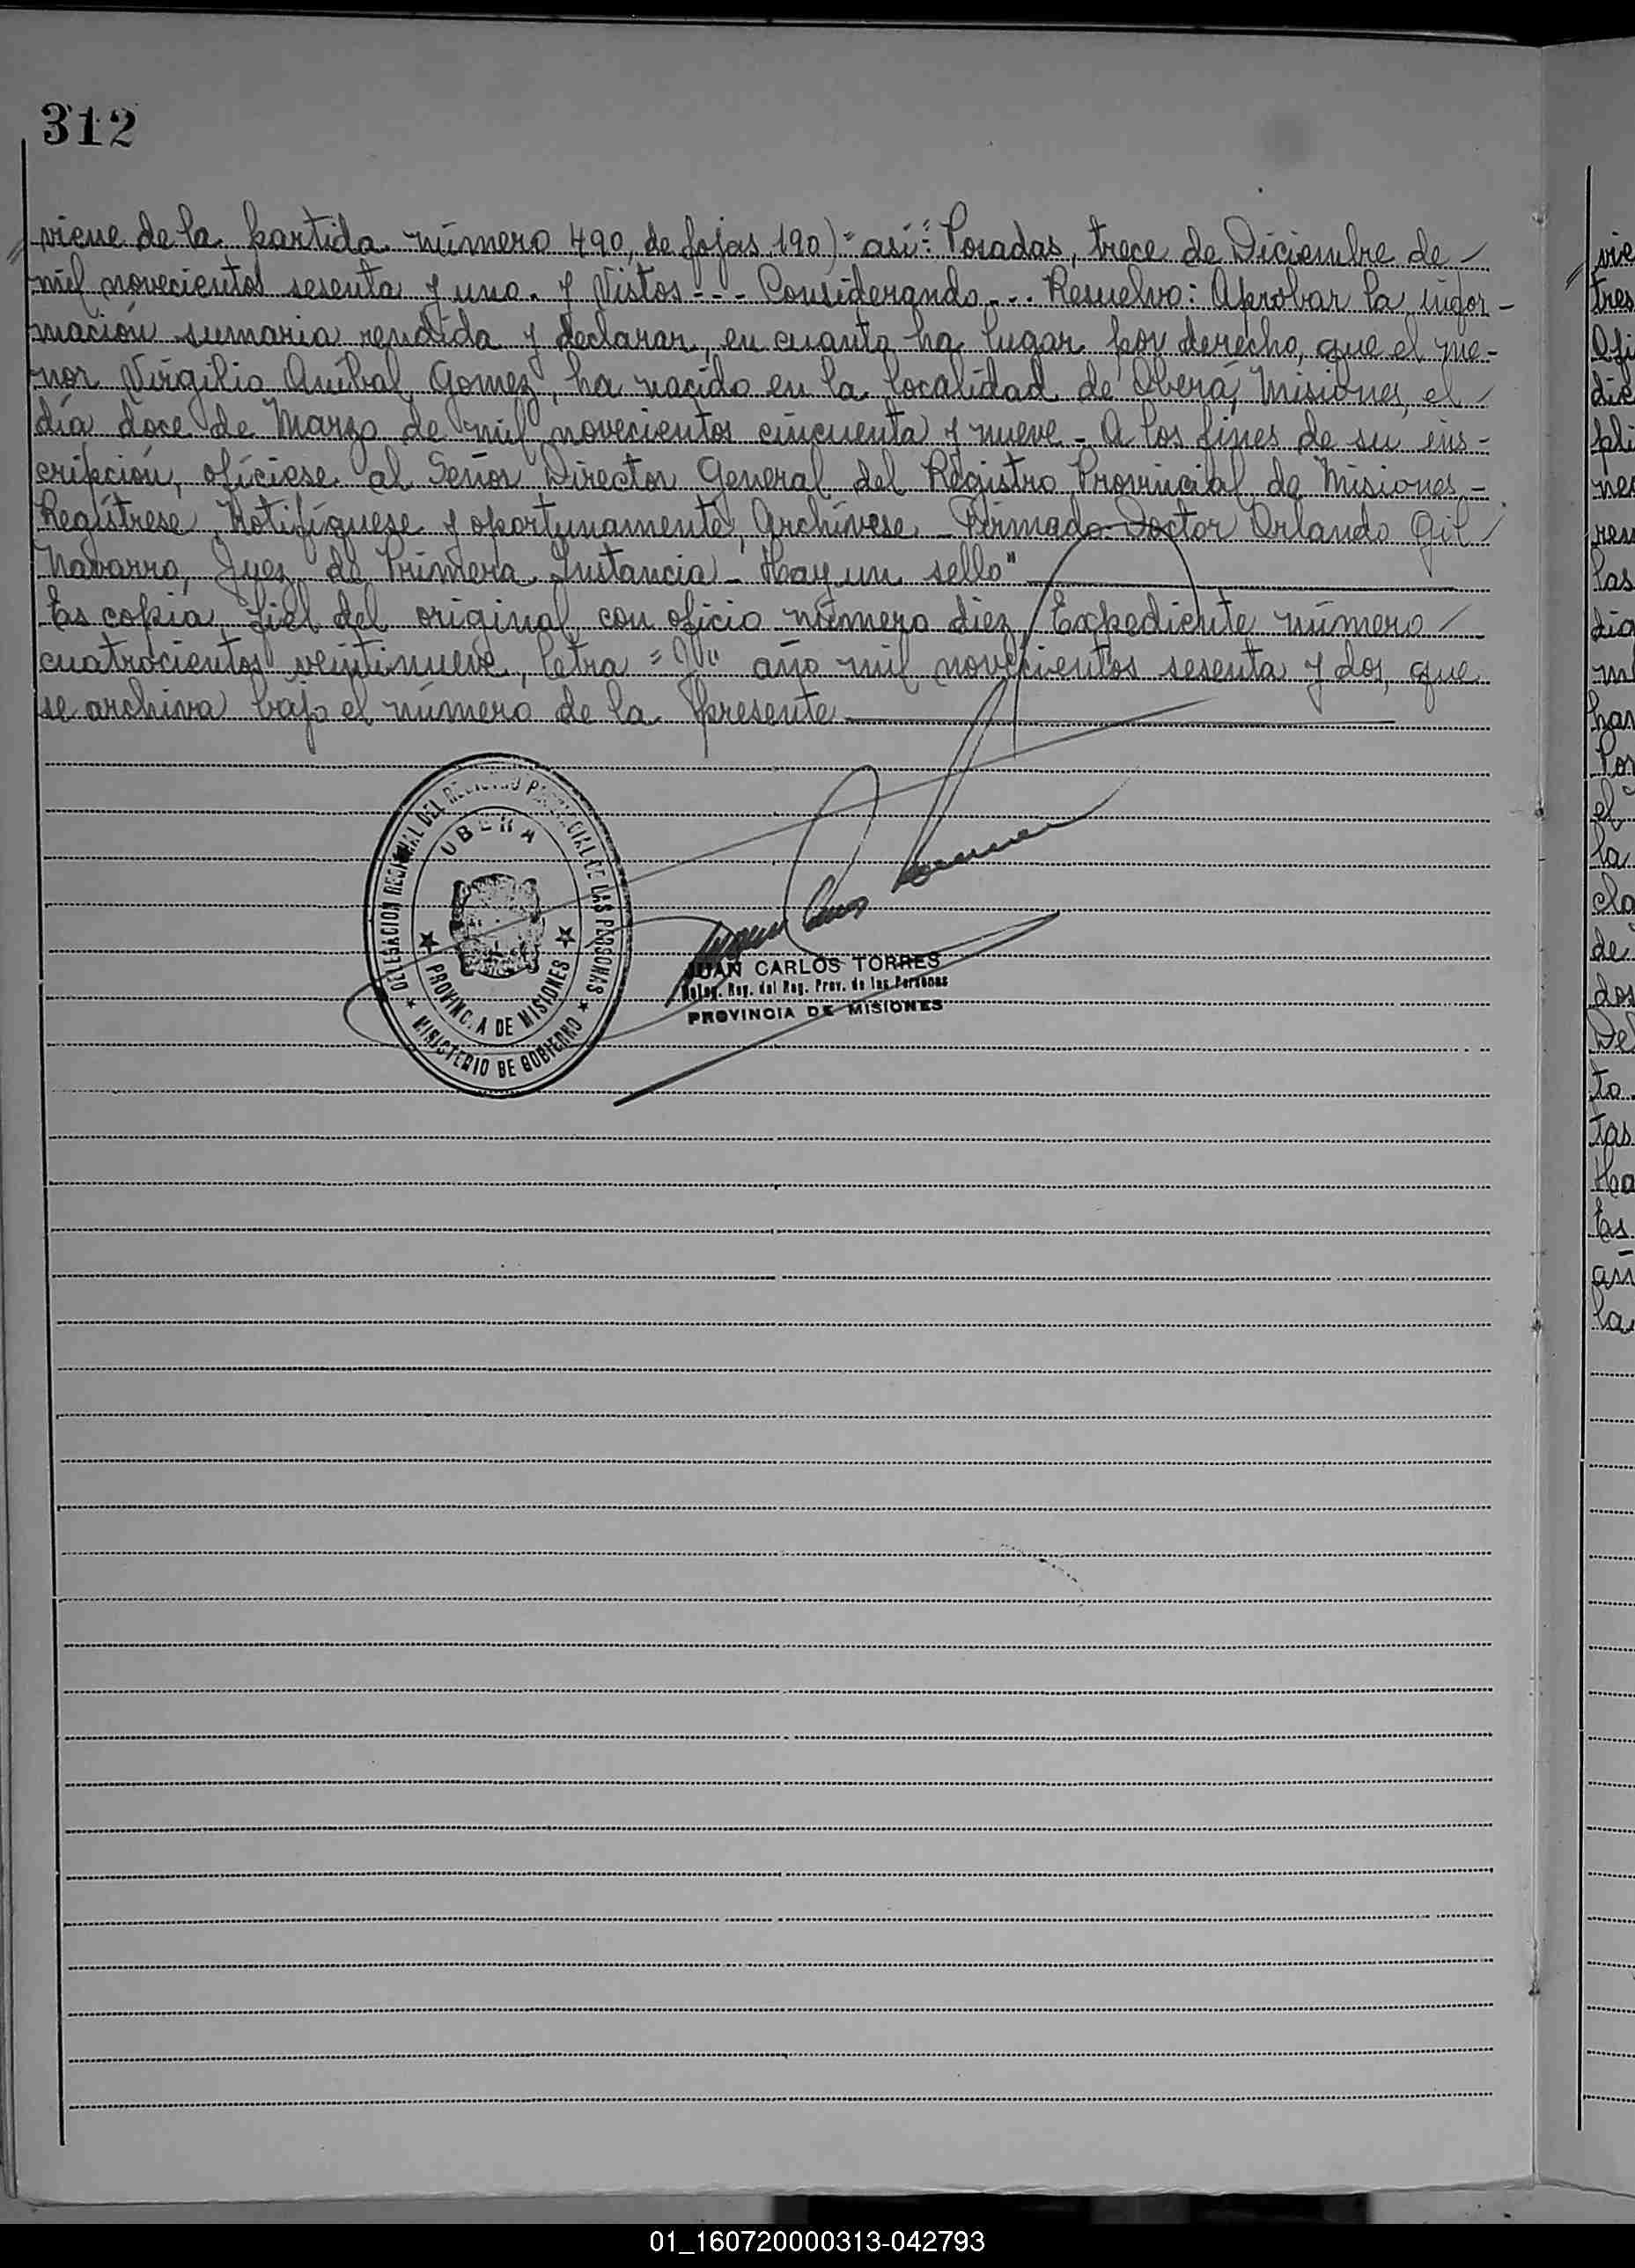 312
viene de la partida número 490, de fojas 190) "así": Posadas, trece de Diciembre de
mil novecientos sesenta y uno. Y Vistos - - - Considerando - . . Resuelvo: Aprobar la infor-
mación sumaria rendida y declarar, en cuanto ha lugar por derecho, que el me-
nor Virgilio Anibal Gomez, ha nacido en la localidad de Oberá, Misiones, el
día doce de Marzo de mil novecientos cincuenta y nueve - A los fines de su ins-
cripción, ofíciese al Señor Director General del Registro Provincial de Misiones.-
Regístrese, Notifíquese y oportunamente, Archívese - Firmado Doctor Orlando Gil
Navarro, Juez de Primera Instancia - Hay un sello"
Es copia fiel del original con oficio número diez, Expediente número
cuatrocientos veintinueve, letra = año mil novecientos sesenta y dos, que
se archiva bajo el número de la presente
DELEGACION REGIONAL DEL REGISTRO PROVINCIAL DE LAS PERSONAS
OBERA
PROVINCIA DE MISIONES
MINISTERIO DE GOBIERNO
JUAN CARLOS TORRES
Deleg. Reg. del Reg. Prov. de las Personas
PROVINCIA DE MISIONES
vie
tres
Ofi
die
pli
ne
res
las
dia
mi
han
Por
el
la
cla
de
dos
Del
to
tas
Ha
Es
la
01_160720000313-042793